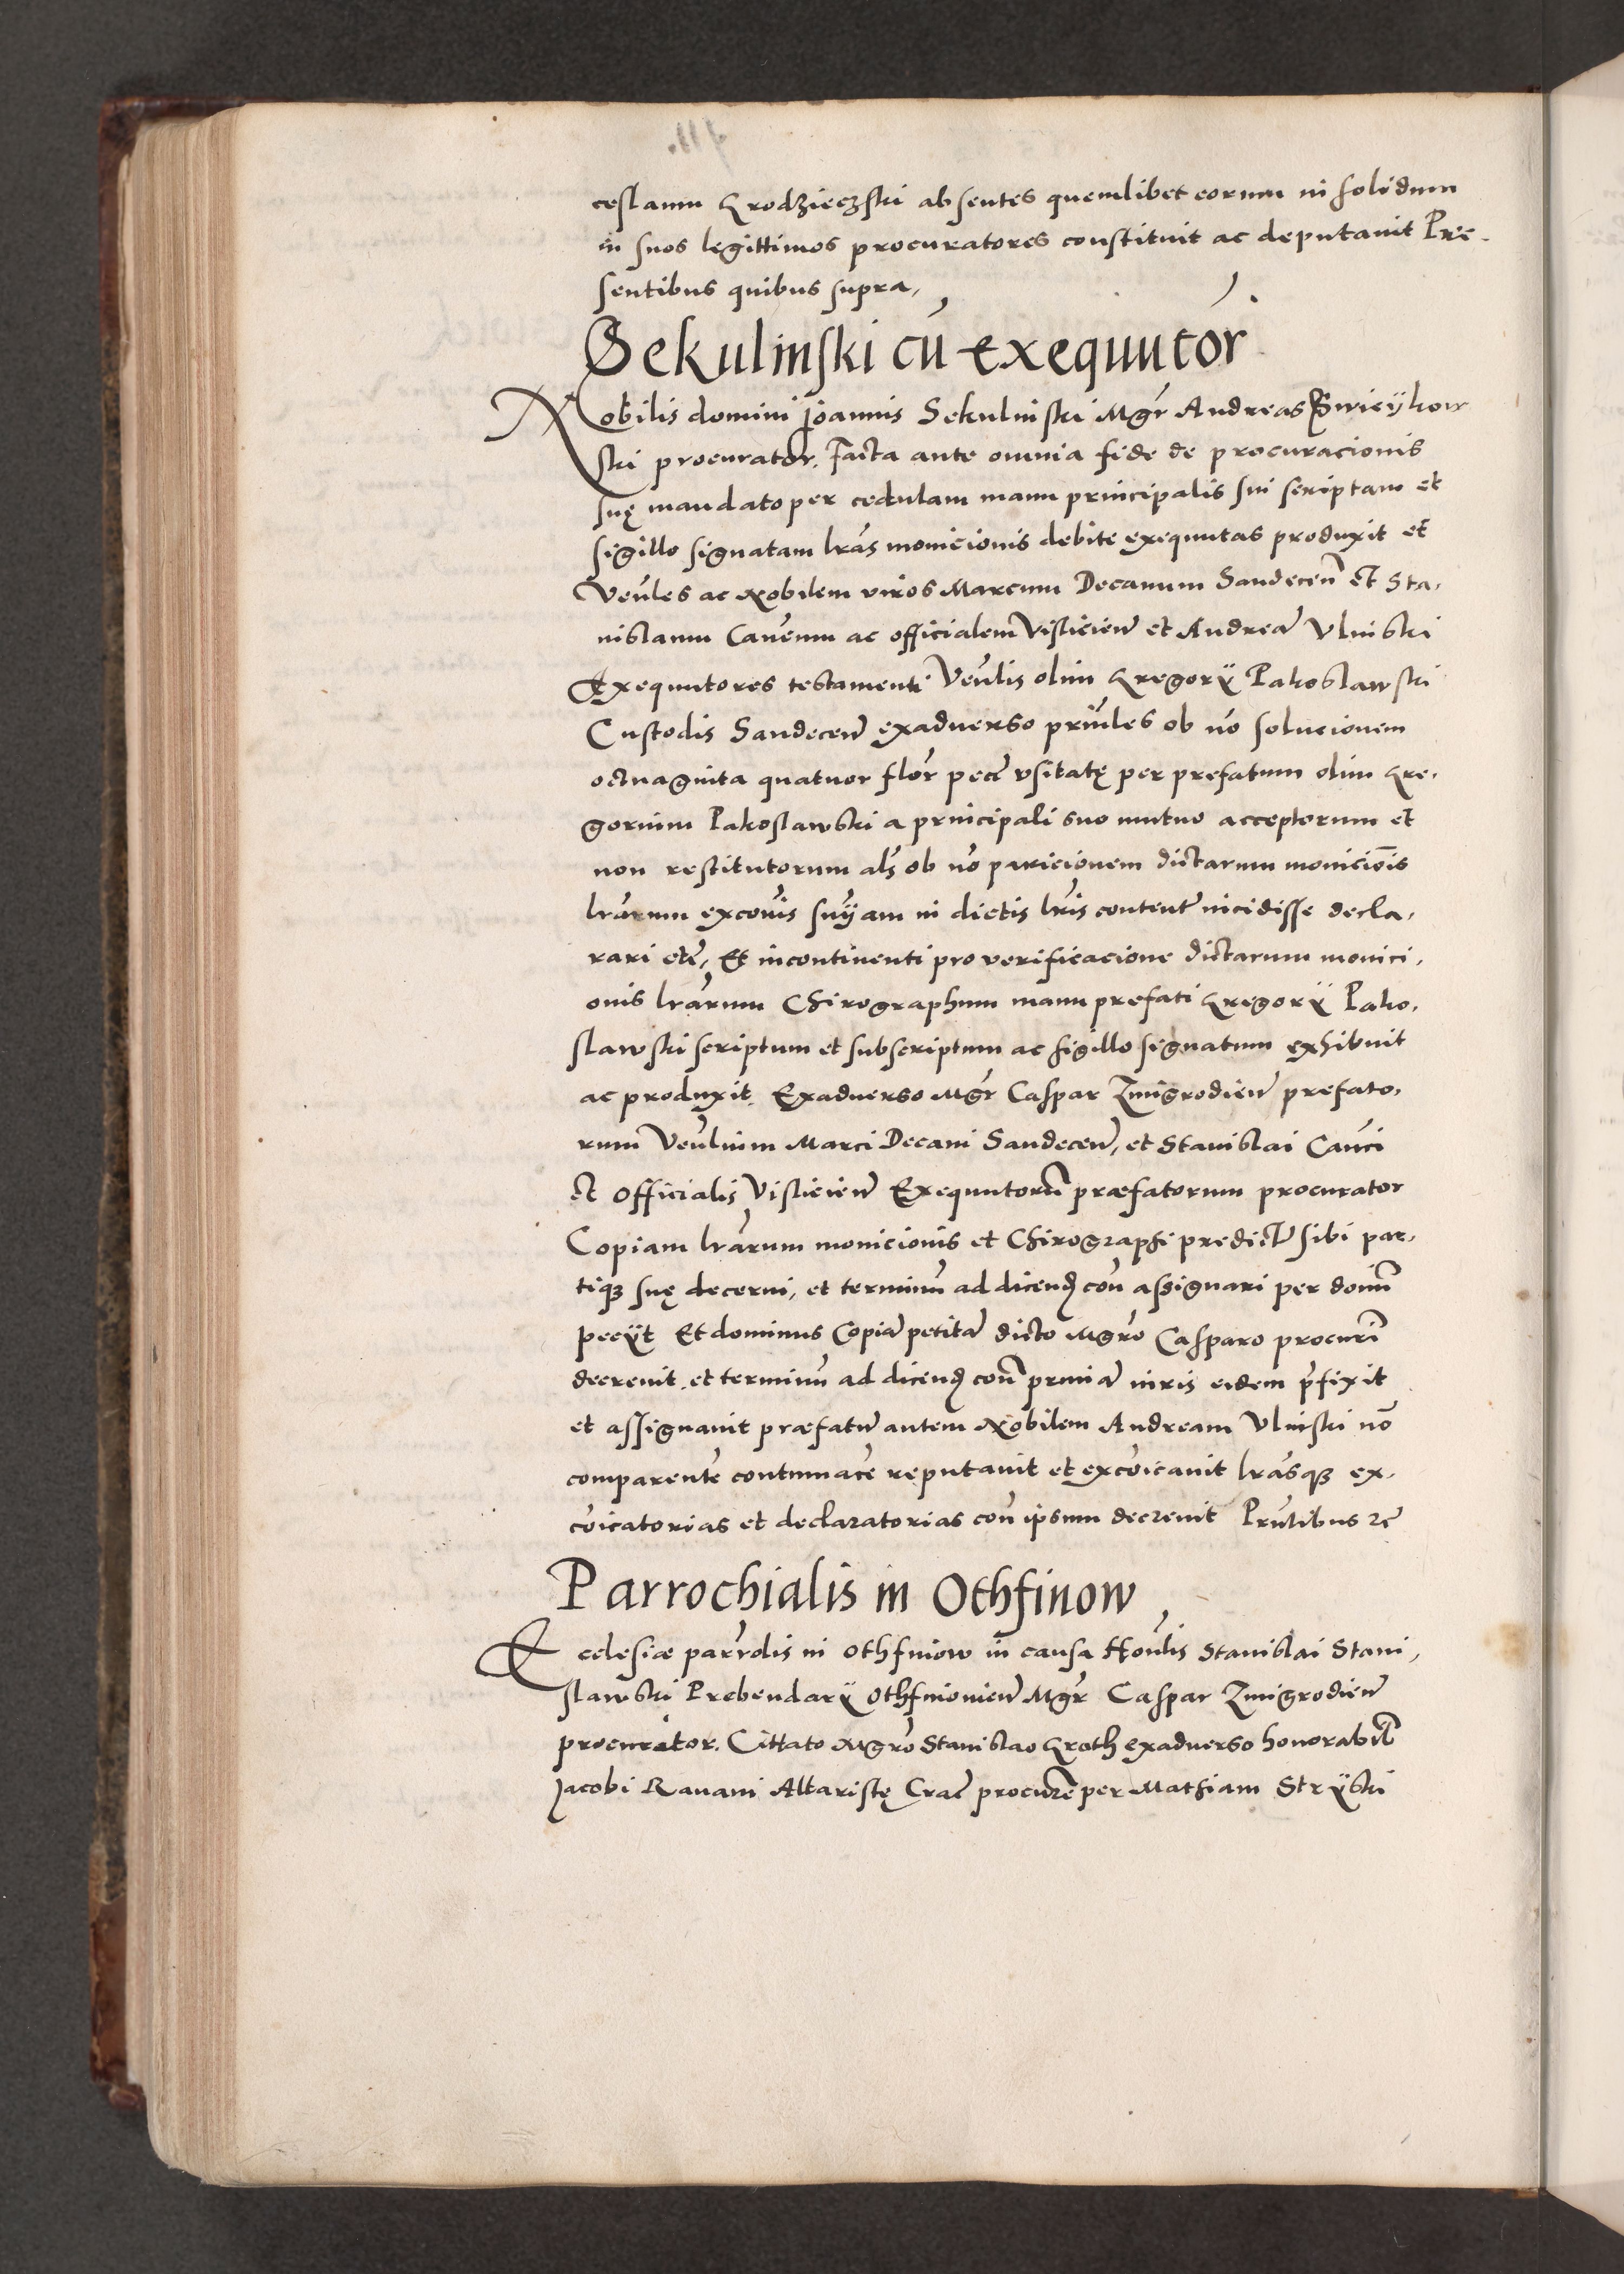 ceslaum Grodzieczski absentes quemlibet eorum in solidum
in suos legittimos procuratores constituit ac deputauit Pre-
sentibus quibus supra,
Sekulinski cū exequutor
Nobilis domini Joannis Sekulinski Mgr Andreas Swieijkow
ski procurator. Facta ante omnia fide de procuracionis
suę mandato per cedulam manu principalis sui scriptam et
sigillo signatam lras monicionis debite exequutas produxit et
Venles ac Nobilem viros Marcum Decanum Sandecen et Sta-
nislaum Canenm ac officialem Vislicien et Andreā Vlinski
Exequutores testamenti Venlis olim Gregorÿ Pakoslawski
Custodis Sandecen exaduerso prinles ob nō solucionem
octuaginta quatuor flor pecc vsitatę per prefatum olim Gre-
gorium Pakoslawski a principali suo mutuo acceptorum et
non restitutorum als ob nō paricionem dictarum moniciōis
lrarum excois snÿam in dictis lris content incidisse decla-
rari etc, Et incontinenti pro verificacione dictarum monici-
onis lrarum Chirographum manu prefati Gregorÿ Pako-
slawski scriptum et subscriptum ac sigillo signatum exhibuit
ac produxit. Exaduerso Mgr Caspar Zmigrodien prefato-
rum Venlium Marci Decani Sandecen, et Stanislai Canci
et Officialis Vislicien Exequutorū præfatorum procurator
Copiam lrarum monicionis et Chirographi predict sibi par-
tiqz suę decerni, et terminū ad dicend con assignari per domū
peciit Et dominus Copiā petitā dicto Mgro Casparo procuri
decreuit. et terminū ad dicend con primā iuris eidem prefixit
et assignauit præfatū autem Nobilem Andream Vlinski nō
comparentē contumacē reputauit et excōicauit lrasqz ex-
cōicatorias et declaratorias con ipsum decreuit Prntibus rc
Parrochialis in Othfinow
Ecclesiæ parrolis in Othfinow in causa Honlis Stanislai Stani-
slawski Prebendarÿ Othfinouien Mgr Caspar Zmigrodien
procurator. Cittato Mgro Stanislao Groth exaduerso honorabil
Jacobi Rauani Altaristę Crac procurē per Mathiam Strÿski